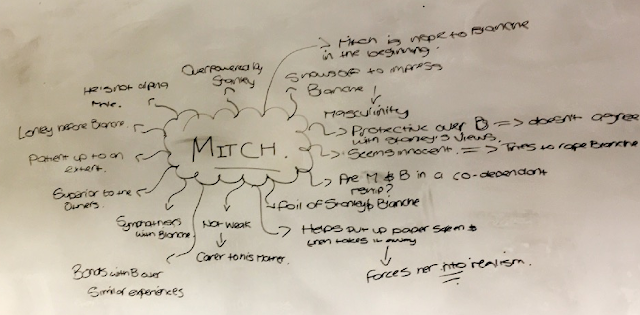 Mitch is hope to Blanche
in the beginning.
Overpowered by
Stanley
Shows off to impress
Blanche
He is not alpha
male.
Masculinity
Lonley before Blanche.
Protective over B => doesn't agree
with Stanley's views.
MITCH.
Seems innocent. => Tries to rape Blanche
Patient up to an
extent.
Are M & B in a co-dependant
rship?
Superior to the
others.
foil of Stanley & Blanche
Sympathises
with Blanche.
Not weak
Carer to his mother.
Helps put up paper &
then takes it away
Forces her into realism.
Bonds with B over
similar experiences